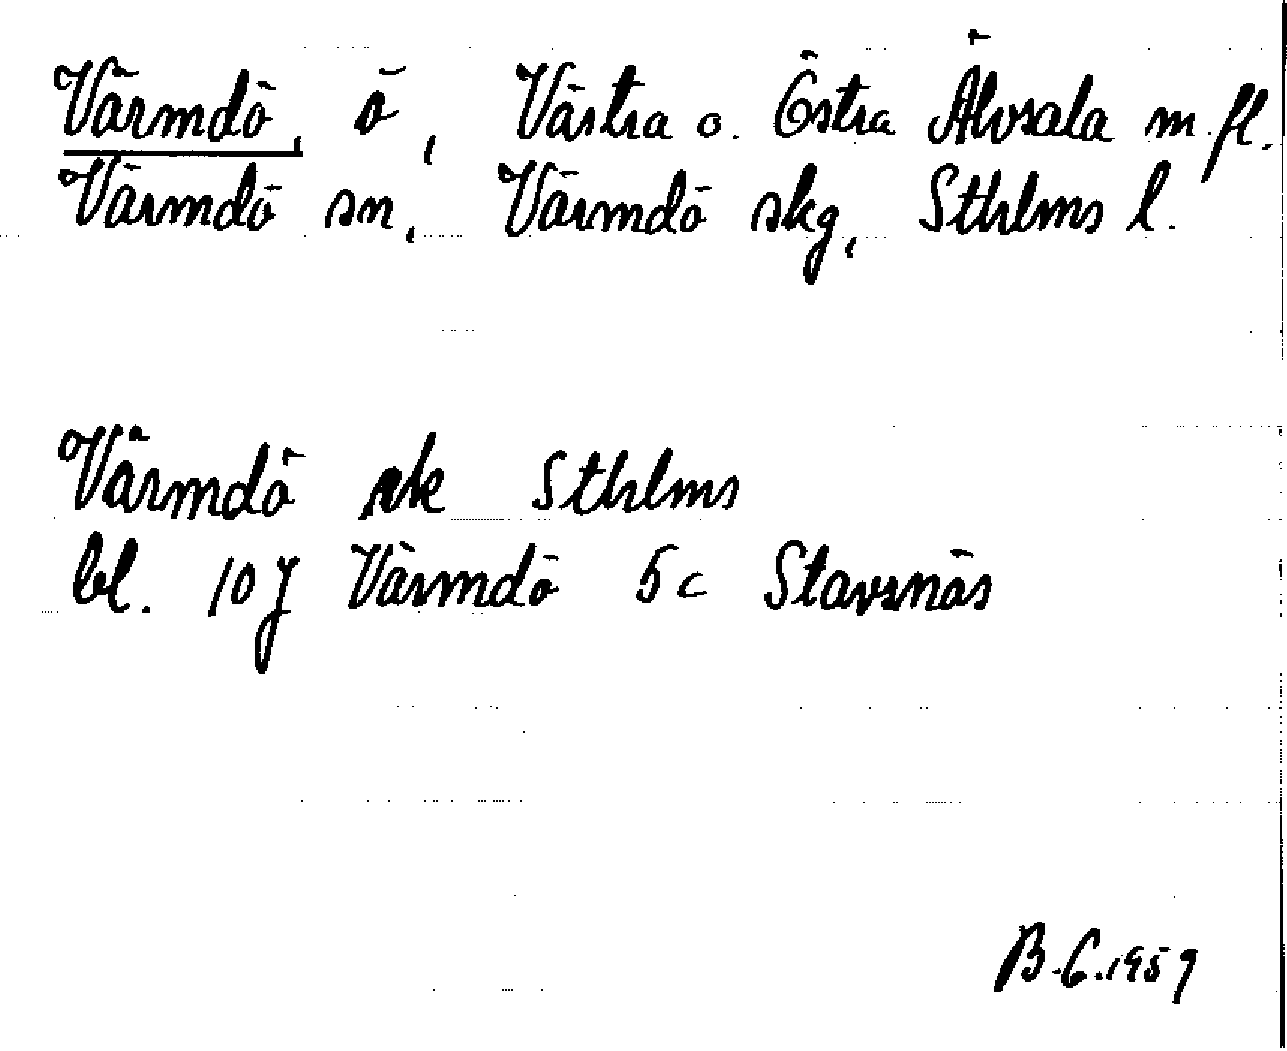 Värmdö, ö, Västra o. Östra Älvsala m. fl.
Värmdö sn, Värmdö skg, Sthlms l.
Värmdö ek Sthlms
bl. 10 J Värmdö 5 c Stavsnäs
B.C. 1959